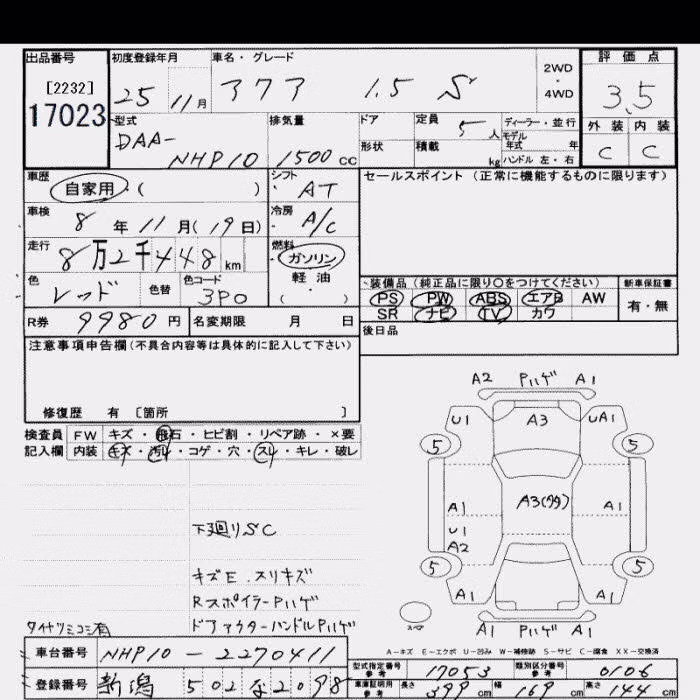 出品番号 初度登録年月 車名・グレード 評価点
[2232] 25 11月 アクア 1.5 S 2WD・4WD 3.5
17023 型式 排気量 ドア 定員 5人 ディーラー・並行 外装 内装
DAA- 形状 積載 kg モデル年式 年 C C
NHP10 1500cc ハンドル 左・右
車歴 自家用・( ) シフト・AT セールスポイント(正常に機能するものに限ります)
車検 8年11月(19日) 冷房・A/C
走行 8万2千448km 燃料・ガソリン
軽油
色 レッド 色替 色コード 3P0 ( ・ )
装備品(純正品に限り〇をつけてください) 新車保証書
PS PW ABS エアB AW 有・無
SR ナビ TV カワ
R券 9980円 名変期限 月 日 後日品
注意事項申告欄(不具合内容等は具体的に記入して下さい)
修復歴 有 [箇所 ]
検査員 FW キズ・飛石・ヒビ割・リペア跡・×要
記入欄 内装 キズ・汚れ・コゲ・穴・スレ・キレ・破レ
A2 Pハゲ A1
U1 A3 UA1
5 5
A1 A3(多) A1
U1
A2
5 5
A1 A1
A1 Pハゲ A1
スペア
下廻りSC
キズE.スリキズ
RスポイラーPハゲ
タイヤツミコミ有 ドアアウターハンドルPハゲ
A-キズ E-エクボ U-凹み W-補修跡 S-サビ C-腐食 XX-交換済
車台番号 NHP10-2270411 型式指定番号 参考 17053 類別区分番号 参考 0106
登録番号 新潟 502 な 2098 車庫証明用 参考 長さ 399cm 幅 169cm 高さ 144cm